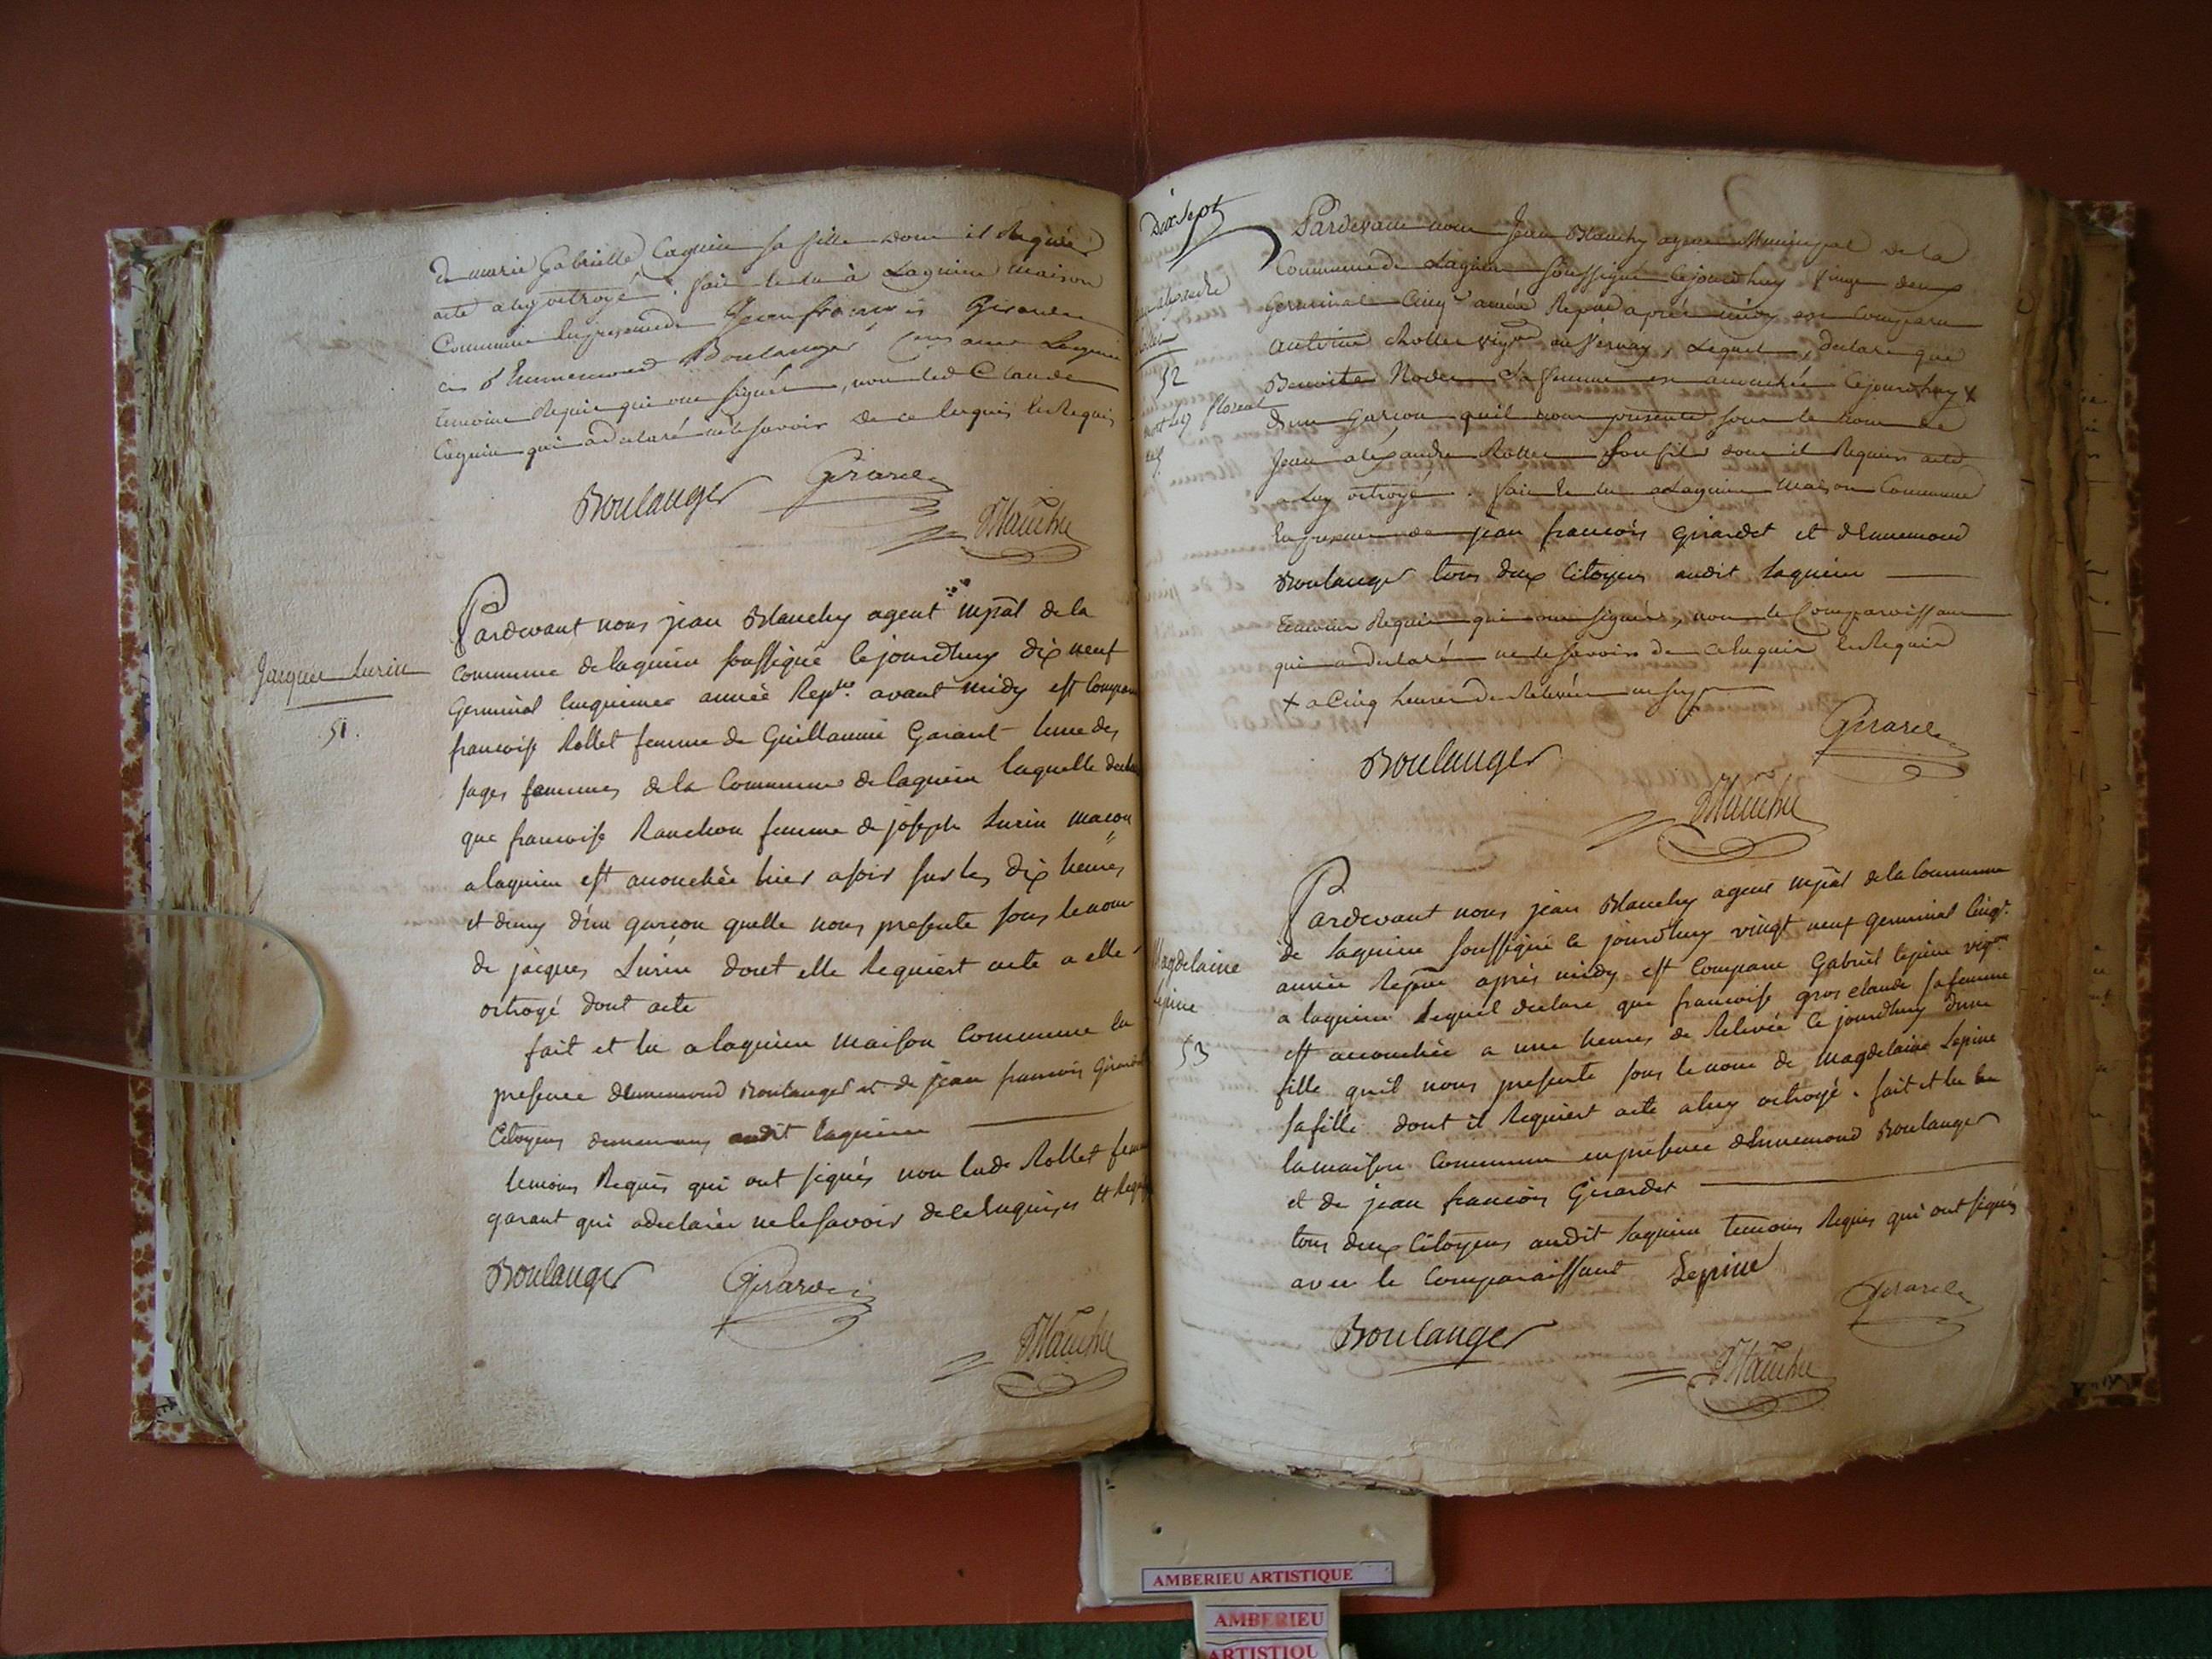 de marie Gabrielle Caguin sa fille dont il Requiert
acte a luy octroyé. fait et lu à Lagnieu Maison
Commune En presence de Jean francois Girardet
et d'Ennemond Boulanger
temoins Requis qui ont signés, non led Claude
Caguin qui a declaré ne le savoir de ce Enquis et Requis
Boulanger Girardet
Blanchy
Jacques Lurin
51.
Pardevant nous jean Blanchy agent mpãl de la
Commune de lagnieu soussigné Cejourdhuy dix neuf
Germinal Cinquieme année Repne. avant midy est Comparu
francoise Rollet femme de Guillaume Garant lune des
sages femmes de la Commune de lagnieu laquelle declare
que francoise Ranchon femme de joseph Lurin macon
a lagnieu est accouchée hier asoir sur les dix heures
et demy d'un garcon quelle nous presente sous le nom
de jacques Lurin dont elle Requiert acte a elle
octroyé dont acte
fait et lu a lagnieu maison Commune En
presence dEnnemond Boulanger et de jean francois Girardet
Citoyens demeurans audit lagnieu
temoins Requis qui ont signés non lade Rollet femme
garant qui a declarée ne le savoir de ce Enquise et Requise
Boulanger Girardet
Blanchy
Dix sept
Jean alexandre
Rollet
52
mort le 17 floreal
Pardevant nous Jean Blanchy agent Municipal De la
Commune de Lagnieu soussigné Cejourdhuy Vingt deux
Germinal Cinqe année Repne après midy est Comparu
Antoine Rollet vigron au Vernay, Lequel, declare que
Benoite Noder Sa femme est accouchée Cejourdhuy x
dun Garcon quil nous presente sous le Nom de
Jean alexandre Rollet son fils dont il Requiert acte
a Luy octroyé. fait et lu a Lagnieu Maison Commune
En presence de jean francois Girardet et dEnnemond
Boulanger tous deux Citoyens audit lagnieu
temoins Requis qui ont signés, non le Comparoissant
qui a declaré ne le savoir de ce Enquis et Requis
x a Cinq heures De Relevée
Boulanger Girardet
Blanchy
Magdelaine
Lepine
53
Pardevant nous jean Blanchy agent mpãl de la Commune
de lagnieu soussigné ce jourdhuy vingt neuf germinal Cinqe.
année Repne après midy est Comparu Gabriel lepine vigron
a lagnieu lequel declare que francoise gros claude sa femme
est accouchée a une heures de Relevée ce jourdhuy dune
fille quil nous presente sous le nom de magdelaine Lepine
sa fille dont il Requiert acte a luy octroyé. fait et lu En
la maison Commune en presence dEnnemond Boulanger
et de jean francois Girardet
tous deux Citoyens audit lagnieu temoins Requis qui ont signés
avec le Comparaissant Lepine
Boulanger Girardet
Blanchy
AMBERIEU ARTISTIQUE
AMBERIEU
ARTISTIQU